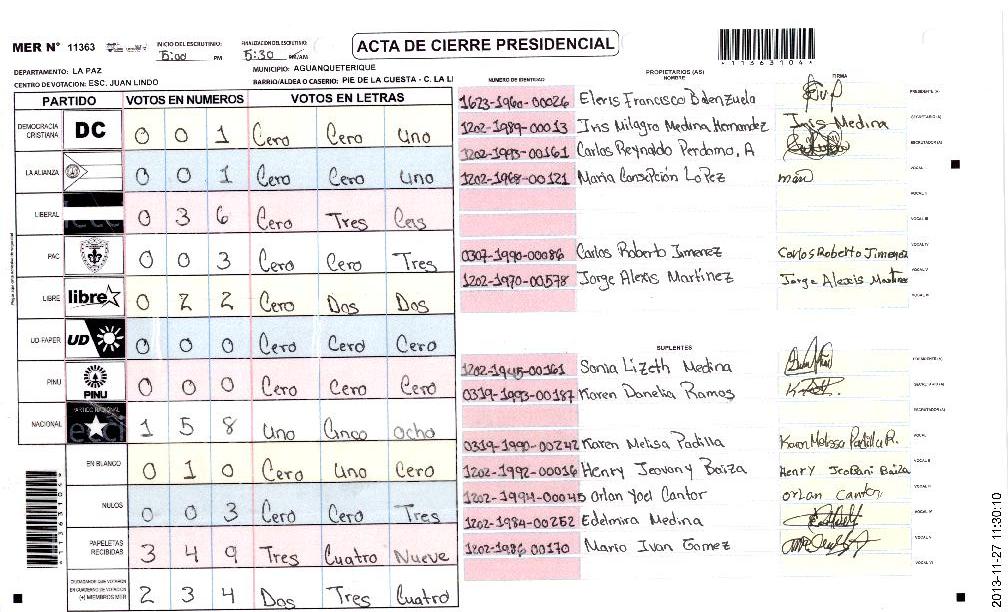 MER N° 11363
INICIO DEL ESCRUTINIO: 5:00 PM
FINALIZACION DEL ESCRUTINIO: 5:30 PM/AM
ACTA DE CIERRE PRESIDENCIAL
*11363104*
DEPARTAMENTO: LA PAZ
MUNICIPIO: AGUANQUETERIQUE
CENTRO DE VOTACION: ESC. JUAN LINDO
BARRIO/ALDEA O CASERIO: PIE DE LA CUESTA - C. LA LI
PARTIDO VOTOS EN NUMEROS VOTOS EN LETRAS
DEMOCRACIA CRISTIANA DC 0 0 1 Cero Cero Uno
LA ALIANZA 0 0 1 Cero Cero Uno
LIBERAL 0 3 6 Cero Tres Ceis
PAC 0 0 3 Cero Cero Tres
LIBRE libre 0 2 2 Cero Dos Dos
UD-FAPER UD 0 0 0 Cero Cero Cero
PINU PINU 0 0 0 Cero Cero Cero
NACIONAL PARTIDO NACIONAL 1 5 8 Uno Cinco Ocho
EN BLANCO 0 1 0 Cero Uno Cero
NULOS 0 0 3 Cero Cero Tres
PAPELETAS RECIBIDAS 3 4 9 Tres Cuatro Nueve
CIUDADANOS QUE VOTARON EN CUADERNO DE VOTACION (+) MIEMBROS MER 2 3 4 Dos Tres Cuatro
PROPIETARIOS (AS)
NUMERO DE IDENTIDAD NOMBRE FIRMA
1623-1960-00026 Eleris Francisco Balenzuela PRESIDENTE (A)
1202-1989-00013 Iris Milagro Medina Hernandez Iris Medina SECRETARIO (A)
1202-1993-00161 Carlos Reynaldo Perdomo, A ESCRUTADOR (A)
1202-1968-00121 Maria Consepción Lopez VOCAL I
VOCAL II
VOCAL III
0307-1990-00086 Carlos Roberto Jimenez Carlos Roberto Jimenez VOCAL IV
1202-1970-00578 Jorge Alexis Martínez Jorge Alexis Martinez VOCAL V
VOCAL VI
SUPLENTES
1202-1945-00161 Sonia Lizeth Medina PRESIDENTE (A)
0319-1993-00187 Karen Danelia Ramos SECRETARIO (A)
ESCRUTADOR (A)
0319-1990-00242 Karen Melisa Padilla Karen Melissa Padilla R. VOCAL I
1202-1992-00016 Henry Jeovany Baiza Henry Jeobani Baiza VOCAL II
1202-1994-00045 Orlan Yoel Cantor Orlan Cantor VOCAL III
1202-1984-00252 Edelmira Medina VOCAL IV
1202-1986-00170 Mario Ivan Gomez VOCAL V
VOCAL VI
2013-11-27 11:30:10